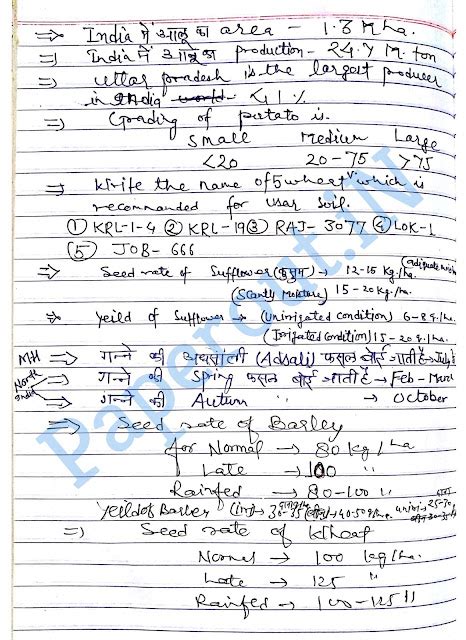 ⇒ India में आलू का area – 1.3 M ha.
⇒ India में आलू का production – 24.7 M. ton
⇒ Uttar pradesh is the largest producer
in India 41%
⇒ Grading of potato is.
Small Medium Large
<20 20-75 >75
⇒ Write the name of 5 wheat V. which is
recommanded for usar soil.
① KRL-1-4 ② KRL-19 ③ RAJ-3077 ④ LOK-1
⑤ JOB-666
⇒ Seed rate of Sufflower (कुसुम) → 12-15 Kg./ha.
(Scanty Moisture) 15-20 kg./ha.
⇒ Yeild of Sufflower → (Unirrigated condition) 6-8 q./ha.
(Irrigated condition) 15-20 q./ha.
MH ⇒ गन्ने की अधसाली (Adsali) फसल बोई जाती है → July
North India → गन्ने की Spring फसल बोई जाती है → Feb-March
→ गन्ने की Autum " → October
⇒ Seed rate of Barley
for Normal → 80 kg/ha
Late → 100 "
Rainfed → 80-100 "
Yeild of Barley (Irri) → 30-35
⇒ Seed rate of Wheat
Normal → 100 kg/ha.
Late → 125 "
Rainfed → 100-125 "
Papercut.IN